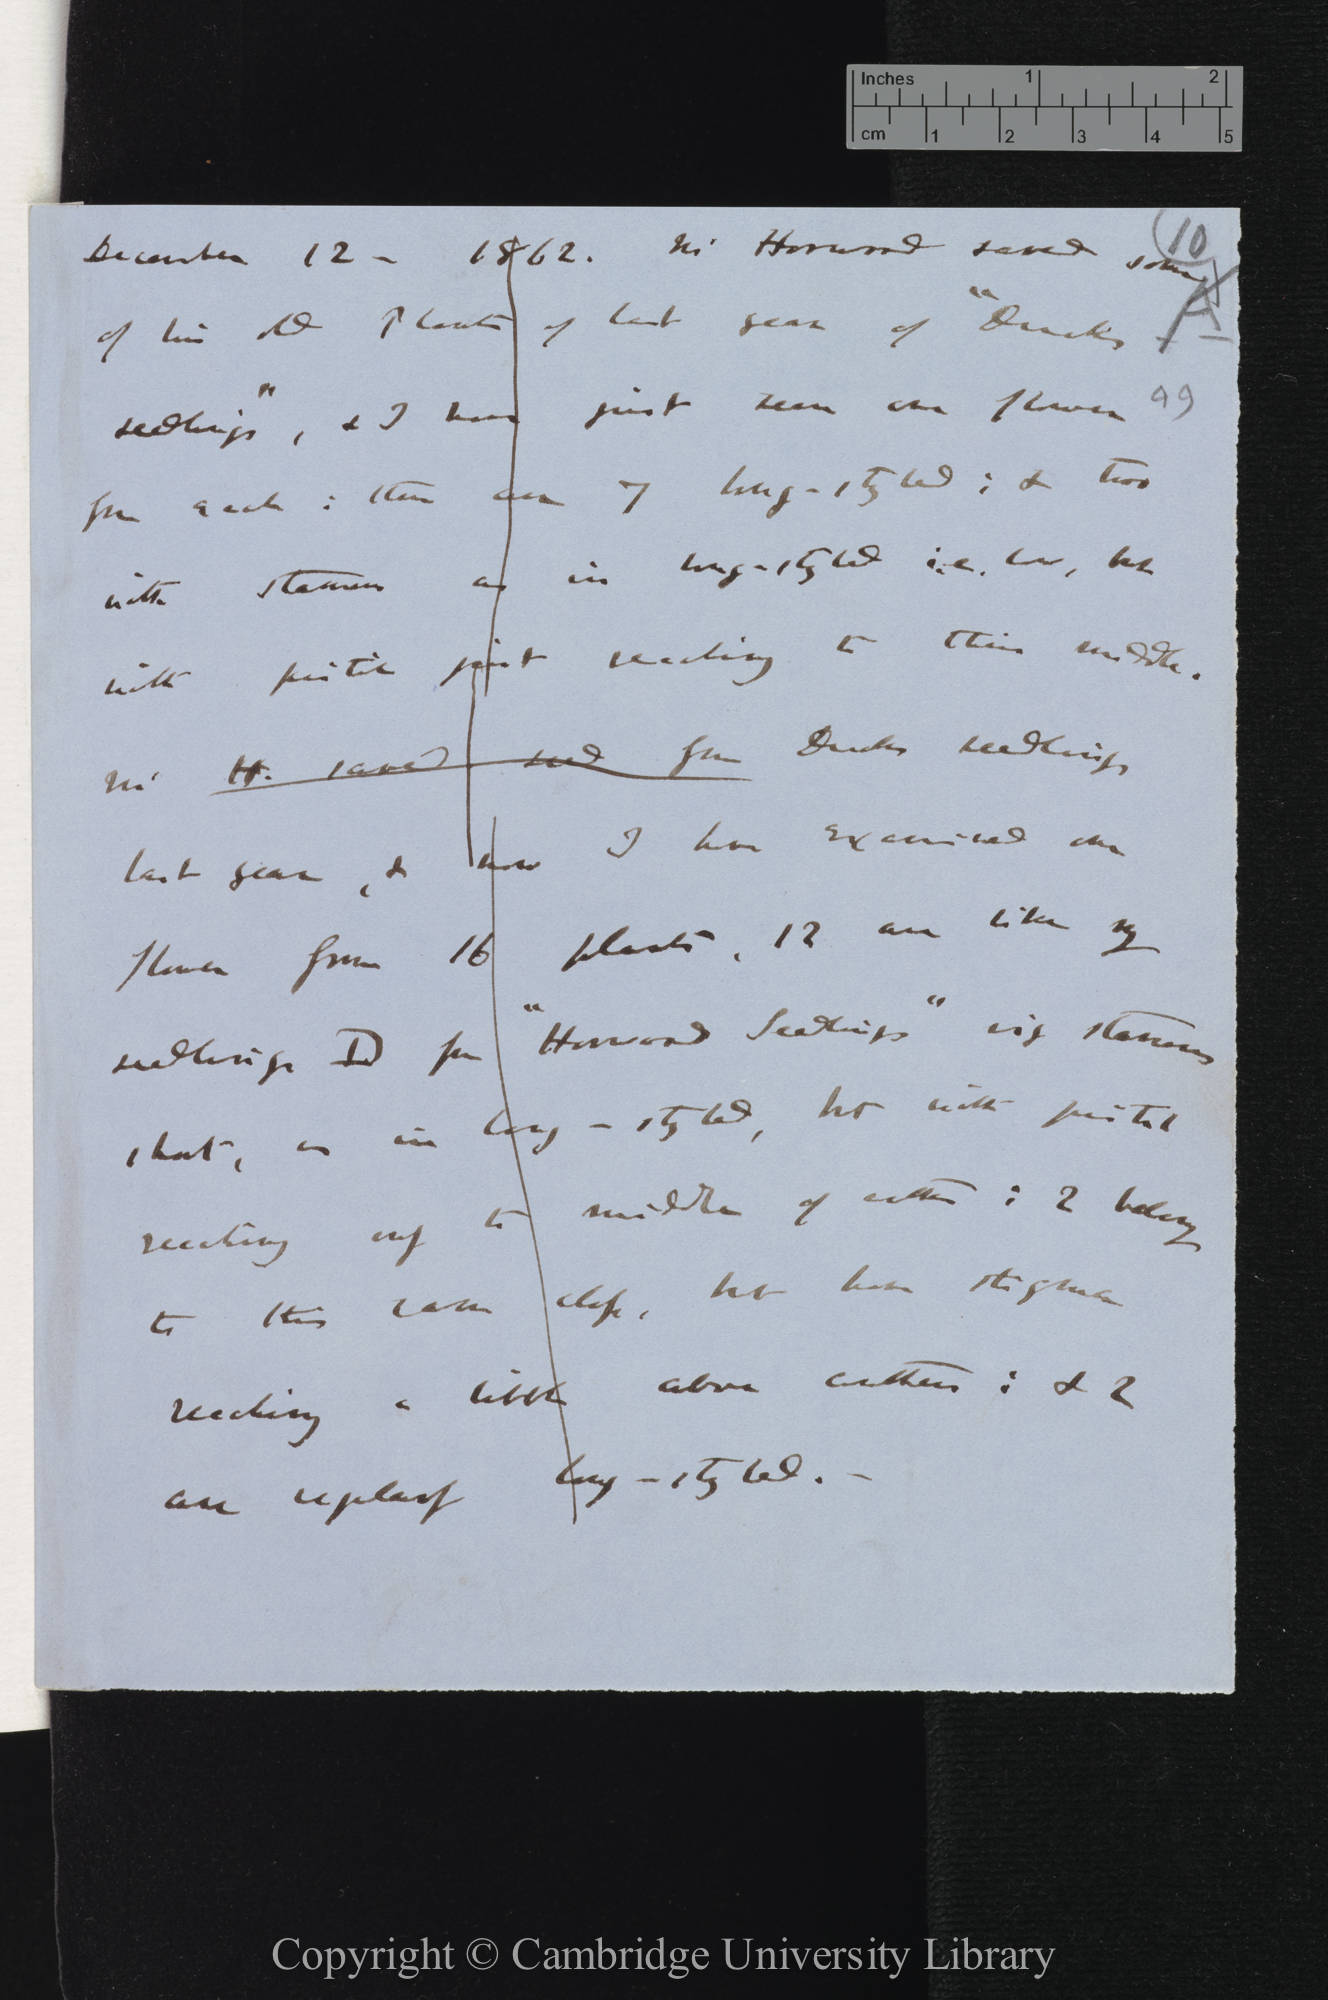 Inches 1 2
cm 1 2 3 4 5
(10
A
99
December 12 – 1862. Mr Horwood saved some
of his old Plants of last year of "Ducks
seedlings", & I have just seen one flower
from each: there are 7 long-styled; & two
with stamens as in long-styled i.e. low, but
with pistil just reaching to their middle.
Mr H. saved seed from Ducks seedlings
last year, & now I have examined one
flower from 16 plants, 12 are like my
seedlings D from "Horwood Seedlings" viz stamens
short, as in long-styled, but with pistil
reaching up to middle of anthers; 2 belong
to this same class, but have stigma
reaching a little above anthers; & 2
are regularly long-styled. –
Copyright © Cambridge University Library